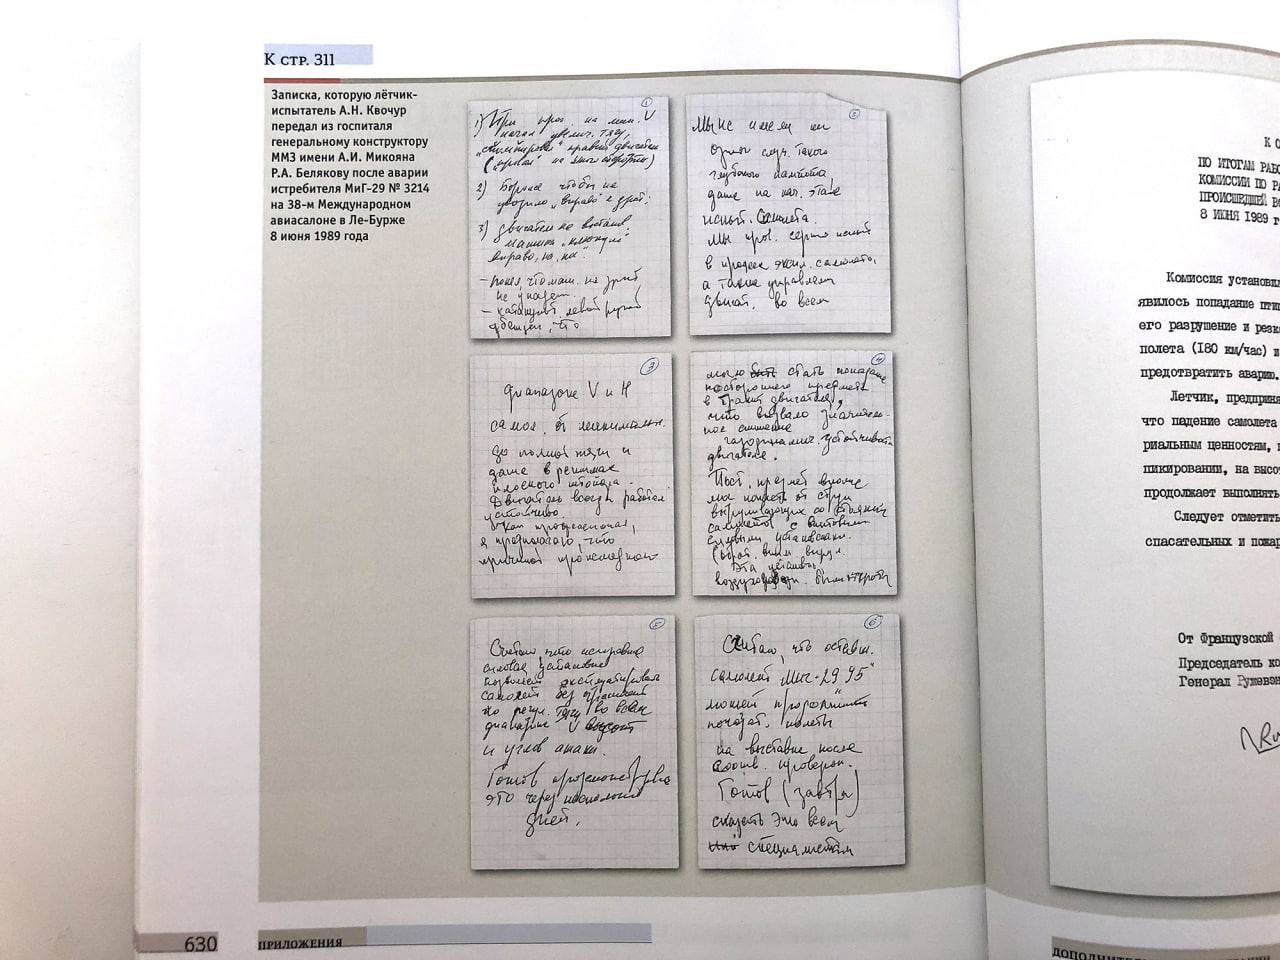 К СТР. 311
Записка, которую лётчик-
испытатель А.Н. Квочур
передал из госпиталя
генеральному конструктору
ММЗ имени А.И. Микояна
Р.А. Белякову после аварии
истребителя МиГ-29 № 3214
на 38-м Международном
авиасалоне в Ле-Бурже
8 июня 1989 года
1
1) При прох. на мин. V
начал увелич. тягу,
правый двигатель
2) Боролся чтобы не
уводило „вправо"
3) Двигатель не восстан.
машина „клюнула"
вправо, но, на
не упадет
левой рукой
что
2
Мы не имели ни
одного случ. такого
глубокого помпажа,
даже на нач. этапе
испыт. самолета.
Мы пров. серию испыт
в процессе экспл. самолета,
а также управлен
двигат. во всем
3
Диапазоне V и H
самол. от минимальн.
до полной тяги и
даже в режимах
плоского штопора.
Двигатель всегда работал
устойчиво.
Как профессионал,
я предполагаю, что
причиной происшедшего
4
могло быть стать попадание
постороннего предмета
в тракт двигателя,
что вызвало значитель-
ное снижение
газодинамич. устойчивости
двигателя.
Пост. предмет вполне
мог попасть от струи
выруливающих со стоянки
самолетов с винтовыми
силовыми установками.
Эта
воздухозаборн. были открыты
5
Считаю, что исправная
силовая установка
позволяет эксплуатировать
самолет без ограничений
по регул. тяги во всем
диапазоне V высот
и углов атаки.
Готов продемонстрировать
это через несколько
дней.
6
Считаю, что оставш.
самолет „МиГ-29 УБ"
может продолжить
показат. полеты
на выставке после
соотв. проверок.
Готов (завтра)
сказать это всем
специалистам
630
ПРИЛОЖЕНИЯ
К О
ПО ИТОГАМ РАБО
КОМИССИИ ПО РА
ПРОИСШЕДШЕЙ ВО
8 ИЮНЯ 1989 г
Комиссия установил
явилось попадание птиц
его разрушение и резк
полета (180 км/час) и
предотвратить аварию.
Летчик, предприня
что падение самолета
риальным ценностям,
пикировании, на высо
продолжает выполнять
Следует отметить
спасательных и пожар
От Французской
Председатель ко
Генерал Ружевэн